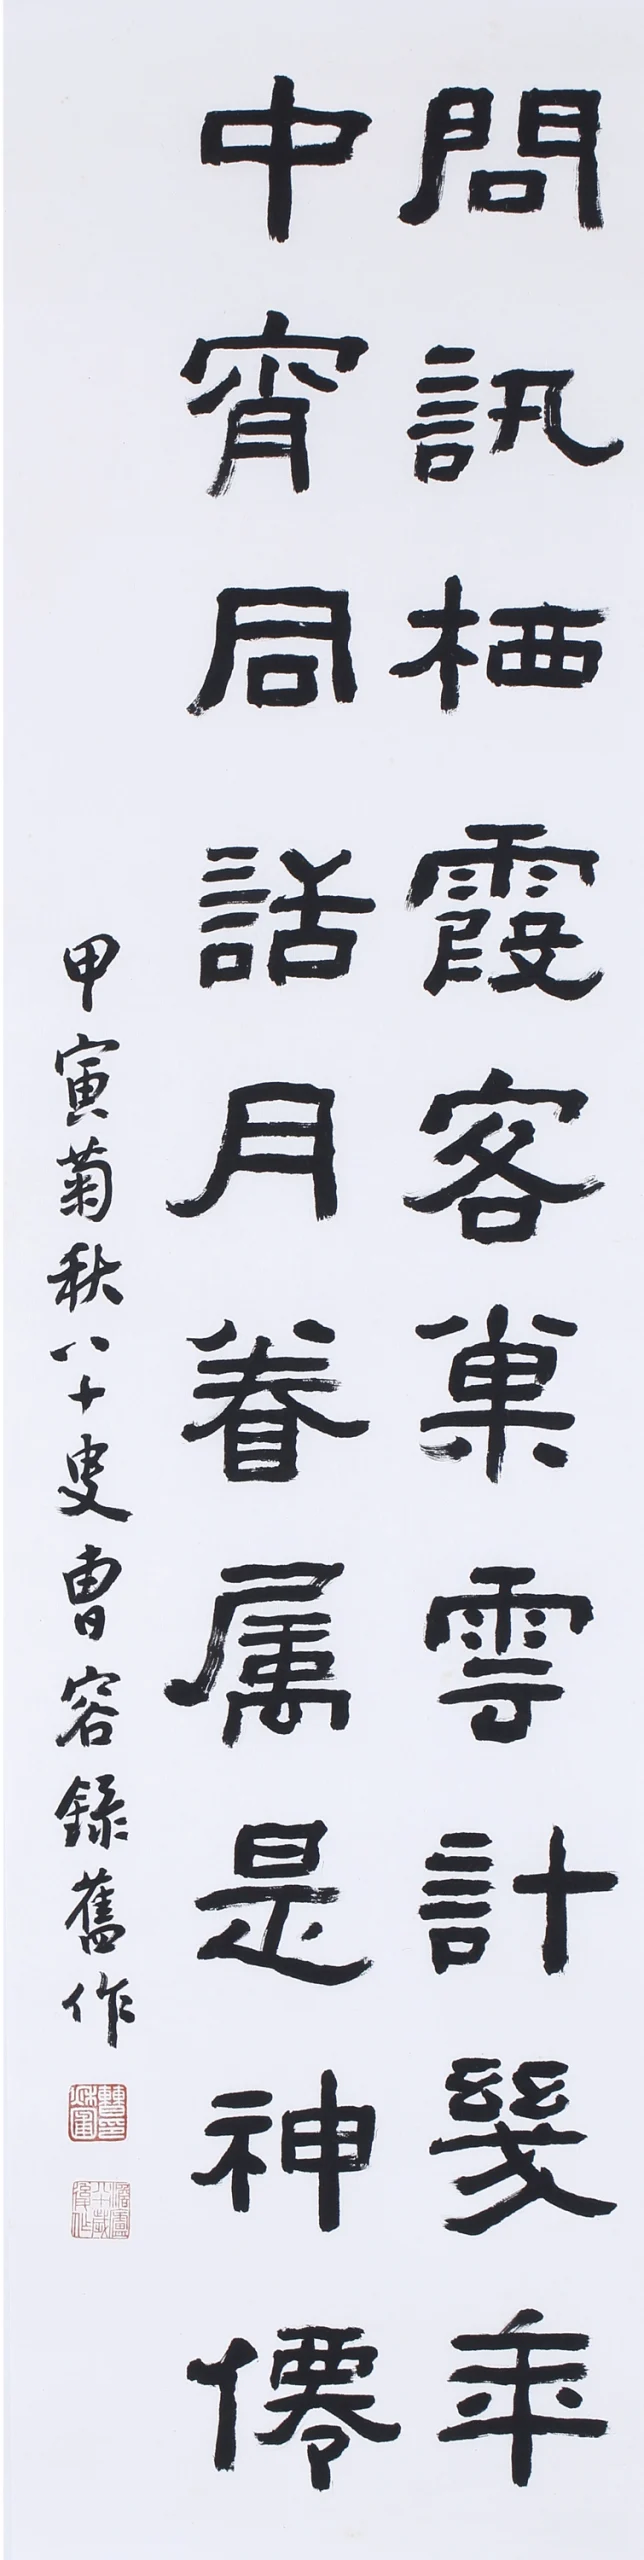 問訊栖霞客巢雲計幾年
中宵同話月眷属是神僊
甲寅菊秋八十叟曹容錄舊作